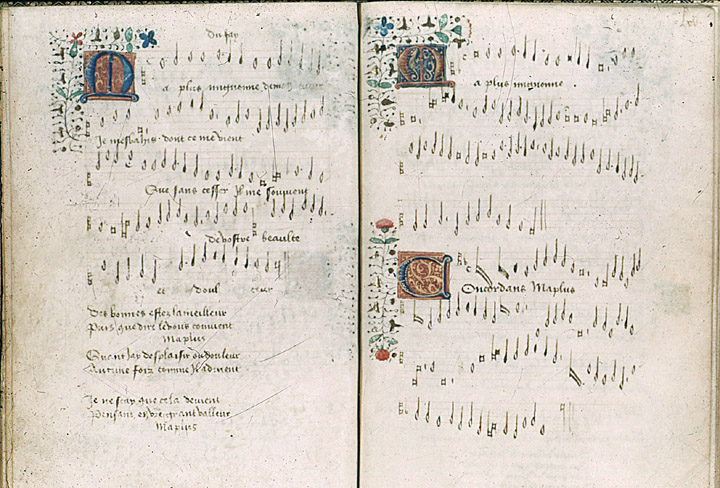 Du fay
Ma plus mignonne de mon cueur
Je mesbahis dont ce me vient
Que sans cesser Il me souvient
de vostre beaulte
et doul ceur
Des bonnes estez la meilleur
Puis que dire le vous convient
Ma plus
Quant Jay desplaisir ou douleur
Aucune foiz comme Il advient
Je ne scay que cela devient
Pensant en vre grant valleur
Ma plus
Ma plus mignonne .
Concordans Ma plus